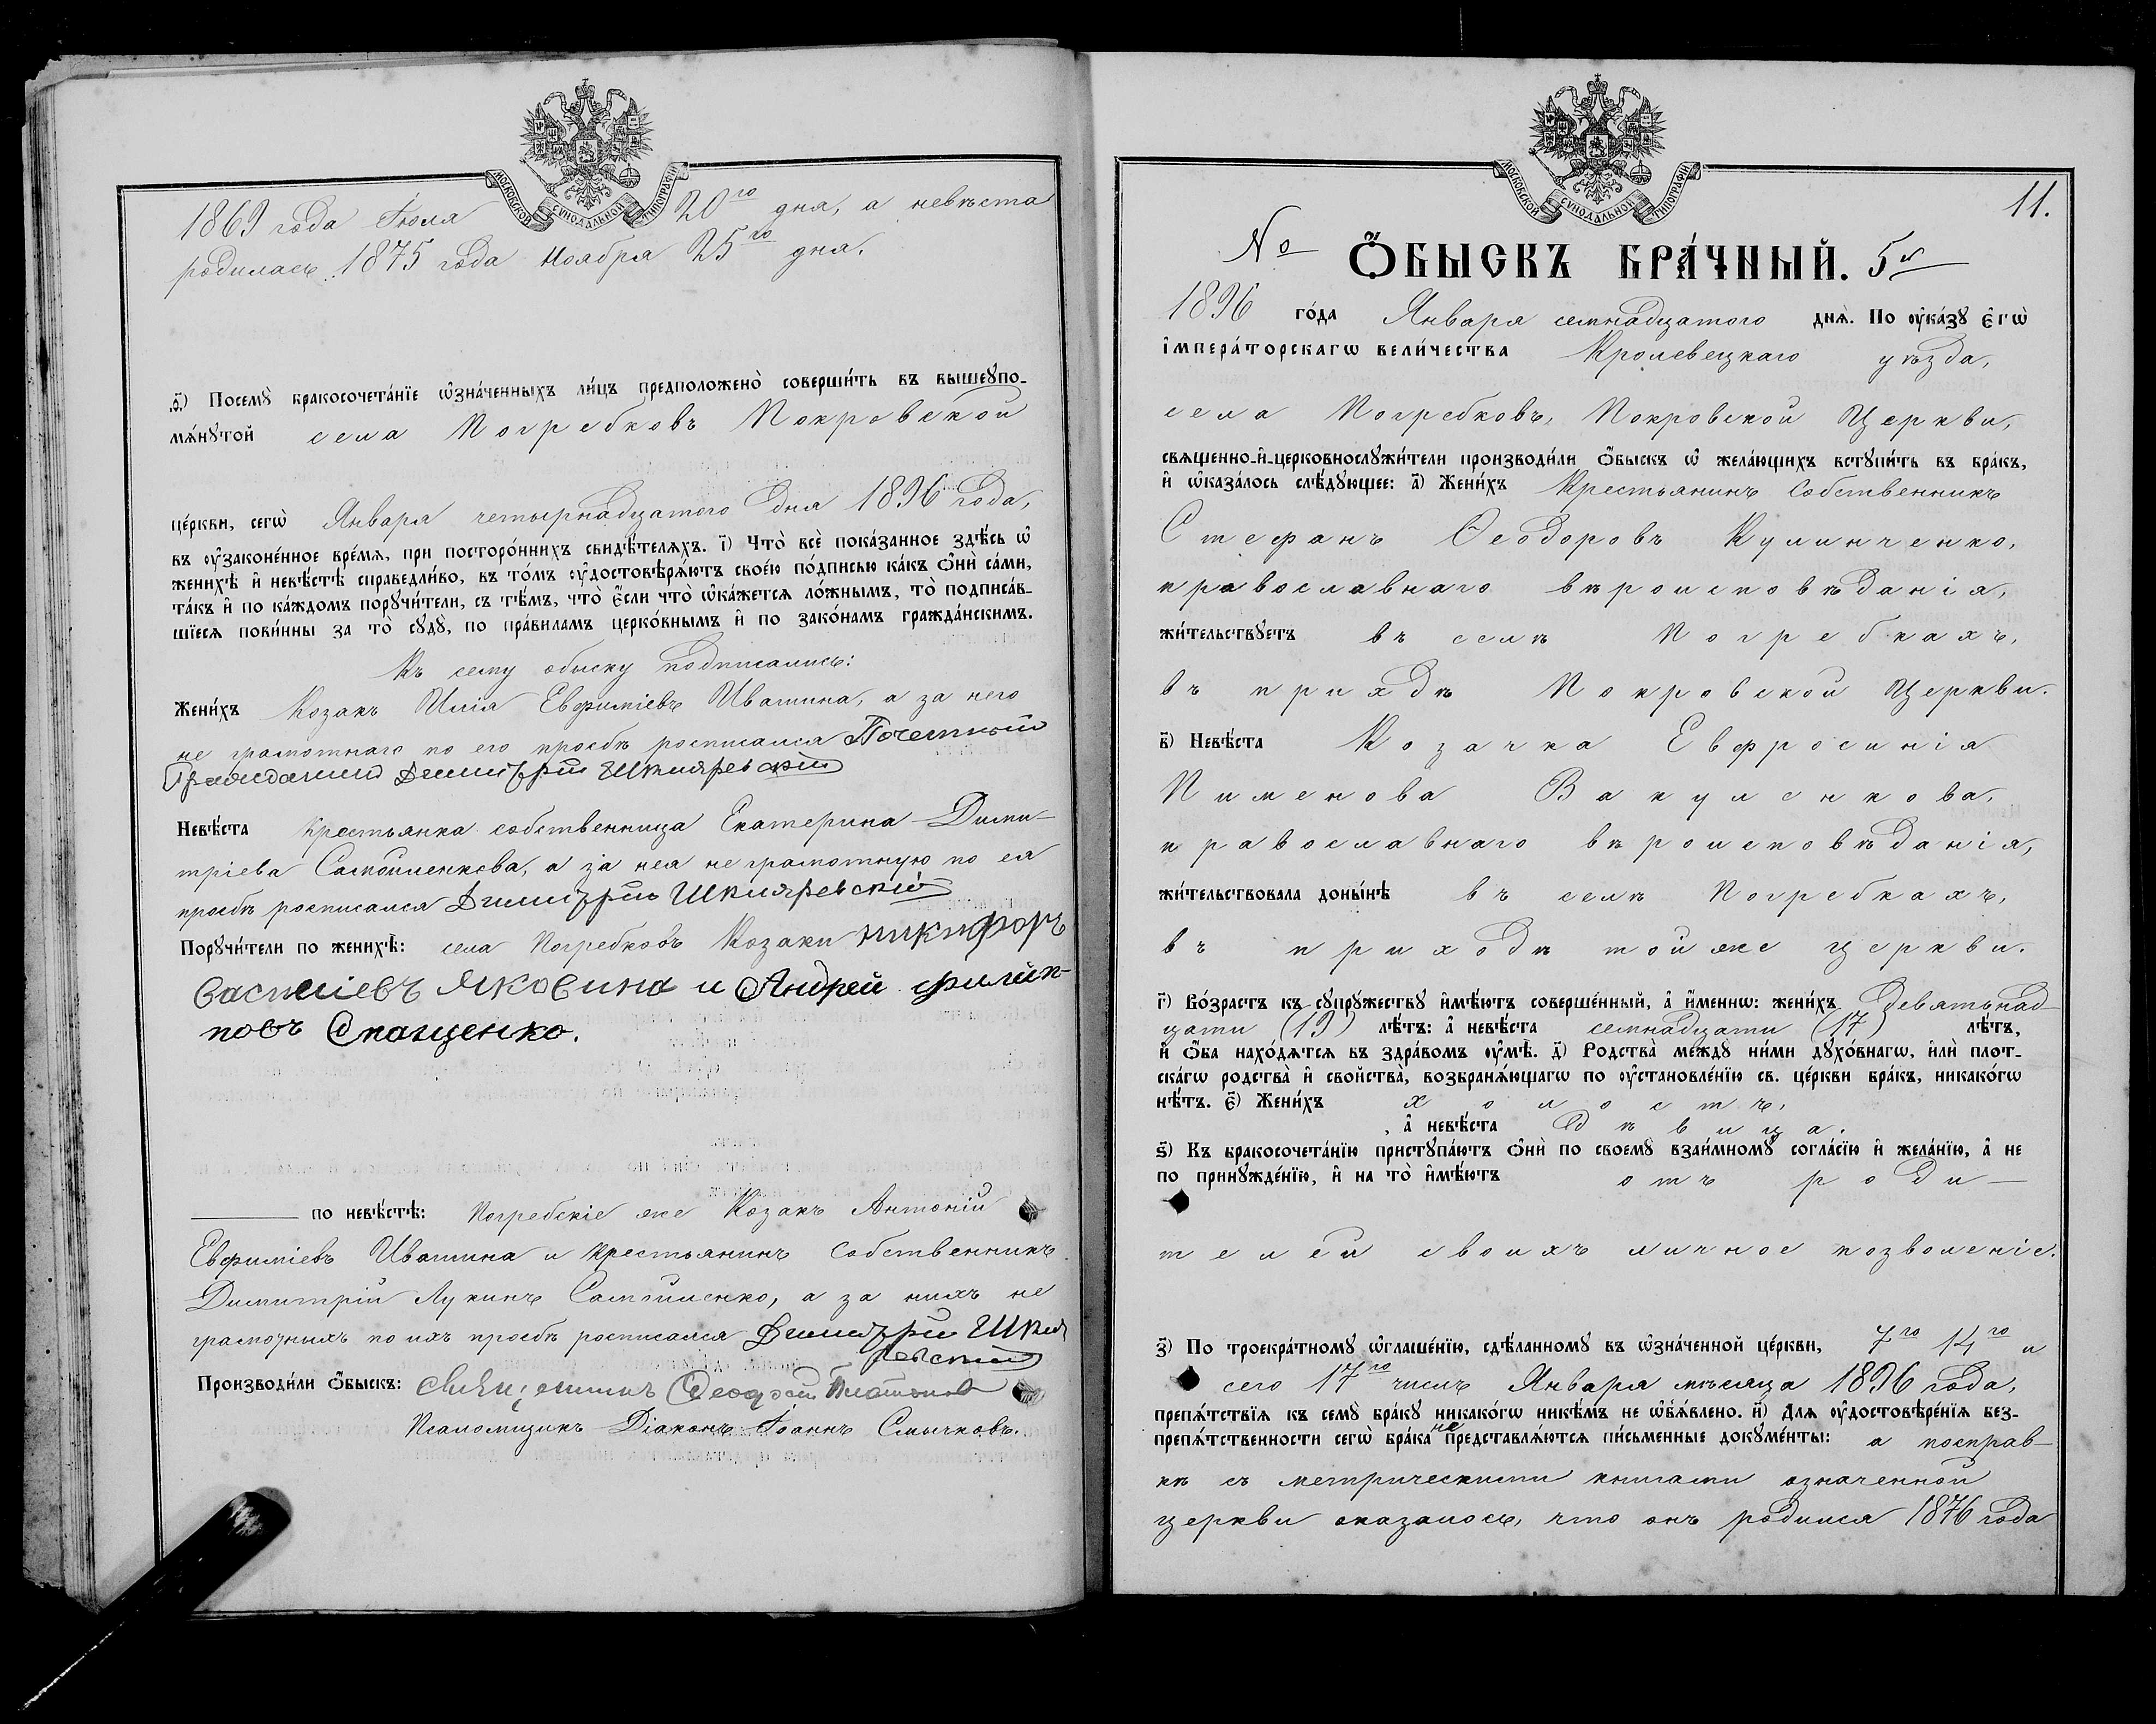 МОСКОВСКОЙ СУНОДАЛЬНОЙ ТИПОГРАФІИ
1869 года Іюля 20го дня, а невѣста
родилась 1875 года Ноября 25го дня.
ѳ҃) Посемꙋ̀ бракосочета́нїе ѡ҆зна́ченныхъ ли́цъ предположено̀ соверши́ть въ вышеꙋпо-
мѧ́нꙋтой села Погребковъ Покровской
це́ркви, сегѡ̀ Января четырнадцатаго дня 1896 года,
въ ᲂу҆законе́нное вре́мѧ, при посторо́ннихъ свидѣ́телѧхъ. і҃) Что̀ всѐ пока́занное здѣ́сь ѡ҆
женихѣ̀ и҆ невѣ́стѣ справедли́во, въ то́мъ ᲂу҆достовѣрѧ́ютъ свое́ю по́дписью ка́къ ѻ҆нѝ са́ми,
та́къ и҆ по ка́ждомъ порꙋчи́тели, съ тѣ́мъ, что̀ є҆́сли что̀ ѡ҆ка́жетсѧ ло́жнымъ, то̀ подписа́в-
шїесѧ пови́нны за то̀ сꙋдꙋ̀, по пра́виламъ церко́внымъ и҆ по зако́намъ гражда́нскимъ.
Къ сему обыску подписались:
Жени́хъ Козакъ Илія Евфиміевъ Ивашина, а за него
не грамотнаго по его просьбѣ росписался Почетный
Гражданинъ Димитрій Шкляревскій
Невѣ́ста Крестьянка собственница Екатерина Дими-
тріева Самойленкова, а за нея не грамотную по ея
просьбѣ росписался Димитрій Шкляревскій
Порꙋчи́тели по женихѣ̀: села Погребковъ Козаки Никифоръ
Василіевъ Яковина и Андрей Филип-
повъ Онащенко.
по невѣ́стѣ: Погребскіе же Козакъ Антоній
Евфиміевъ Ивашина и крестьянинъ собственникъ
Димитрій Лукинъ Самойленко, а за нихъ не
грамотныхъ по ихъ просьбѣ росписался Димитрій Шкля
ревскій
Производи́ли ѻ҆́быскъ: Священникъ Ѳеодосій Платонов
Псаломщикъ Діаконъ Іоаннъ Смычковъ.
МОСКОВСКОЙ СУНОДАЛЬНОЙ ТИПОГРАФІИ
11.
№ Ѻ҆́БЫСКЪ БРА́ЧНЫЙ. 5й
1896 го́да Января семнадцатаго днѧ̀. По ᲂу҆ка́зꙋ є҆гѡ̀
і҆мпера́торскагѡ вели́чества Кролевецкаго уѣзда,
села Погребковъ, Покровской Церкви,
свѧщенно-и҆-церковнослꙋжи́тели производи́ли ѻ҆́быскъ ѡ҆ жела́ющихъ встꙋпи́ть въ бра́къ,
и҆ ѡ҆каза́лось слѣ́дꙋющее: а҃) Жени́хъ Крестьянинъ Собственникъ
Стефанъ Ѳеодоровъ Кулинченко,
православнаго вѣроисповѣданія,
жи́тельствꙋетъ въ селѣ Погребкахъ,
въ приходѣ Покровской Церкви.
в҃) Невѣ́ста Козачка Евфросинія
Пименова Вакуленкова,
православнаго вѣроисповѣданія,
жи́тельствовала доны́нѣ въ селѣ Погребкахъ,
въ приходѣ той же церкви.
г҃) Во́зрастъ къ сꙋпрꙋ́жествꙋ и҆мѣ́ютъ соверше́нный, а҆ и҆́менно: жени́хъ девятьнад-
цати (19) лѣ́тъ: а҆ невѣ́ста семнадцати (17) лѣ́тъ,
и҆ ѻ҆́ба нахо́дѧтсѧ въ здра́вомъ ᲂу҆мѣ̀. д҃) Родства̀ междꙋ ни́ми дꙋхо́внагѡ, и҆лѝ плот-
ска́гѡ родства̀ и҆ свойства̀, возбранѧ́ющагѡ по ᲂу҆становле́нїю св. це́ркви бра́къ, никако́гѡ
нѣ́тъ. є҃) Жени́хъ холостъ,
а҆ невѣ́ста дѣвица.
ѕ҃) Къ бракосочета́нїю пристꙋпа́ютъ ѻ҆нѝ по своемꙋ̀ взаи́мномꙋ согла́сїю и҆ жела́нїю, а҆ не
по принꙋжде́нїю, и҆ на то̀ и҆мѣ́ютъ отъ роди-
телей своихъ личное позволеніе.
з҃) По троекра́тномꙋ ѡ҆глаше́нїю, сдѣ́ланномꙋ въ ѡ҆зна́ченной це́ркви, 7го 14го и
сего 17го числъ Января мѣсяца 1896 года,
препѧ́тствїѧ къ семꙋ̀ бра́кꙋ никако́гѡ никѣ́мъ не ѡ҆б̾ѧ́влено. и҃) Длѧ ᲂу҆достовѣре́нїѧ без-
препѧ́тственности сегѡ̀ бра́ка не представлѧ́ютсѧ пи́сьменные докꙋме́нты: а посправ-
кѣ съ метрическими книгами означенной
церкви оказалось, что онъ родился 1876 года